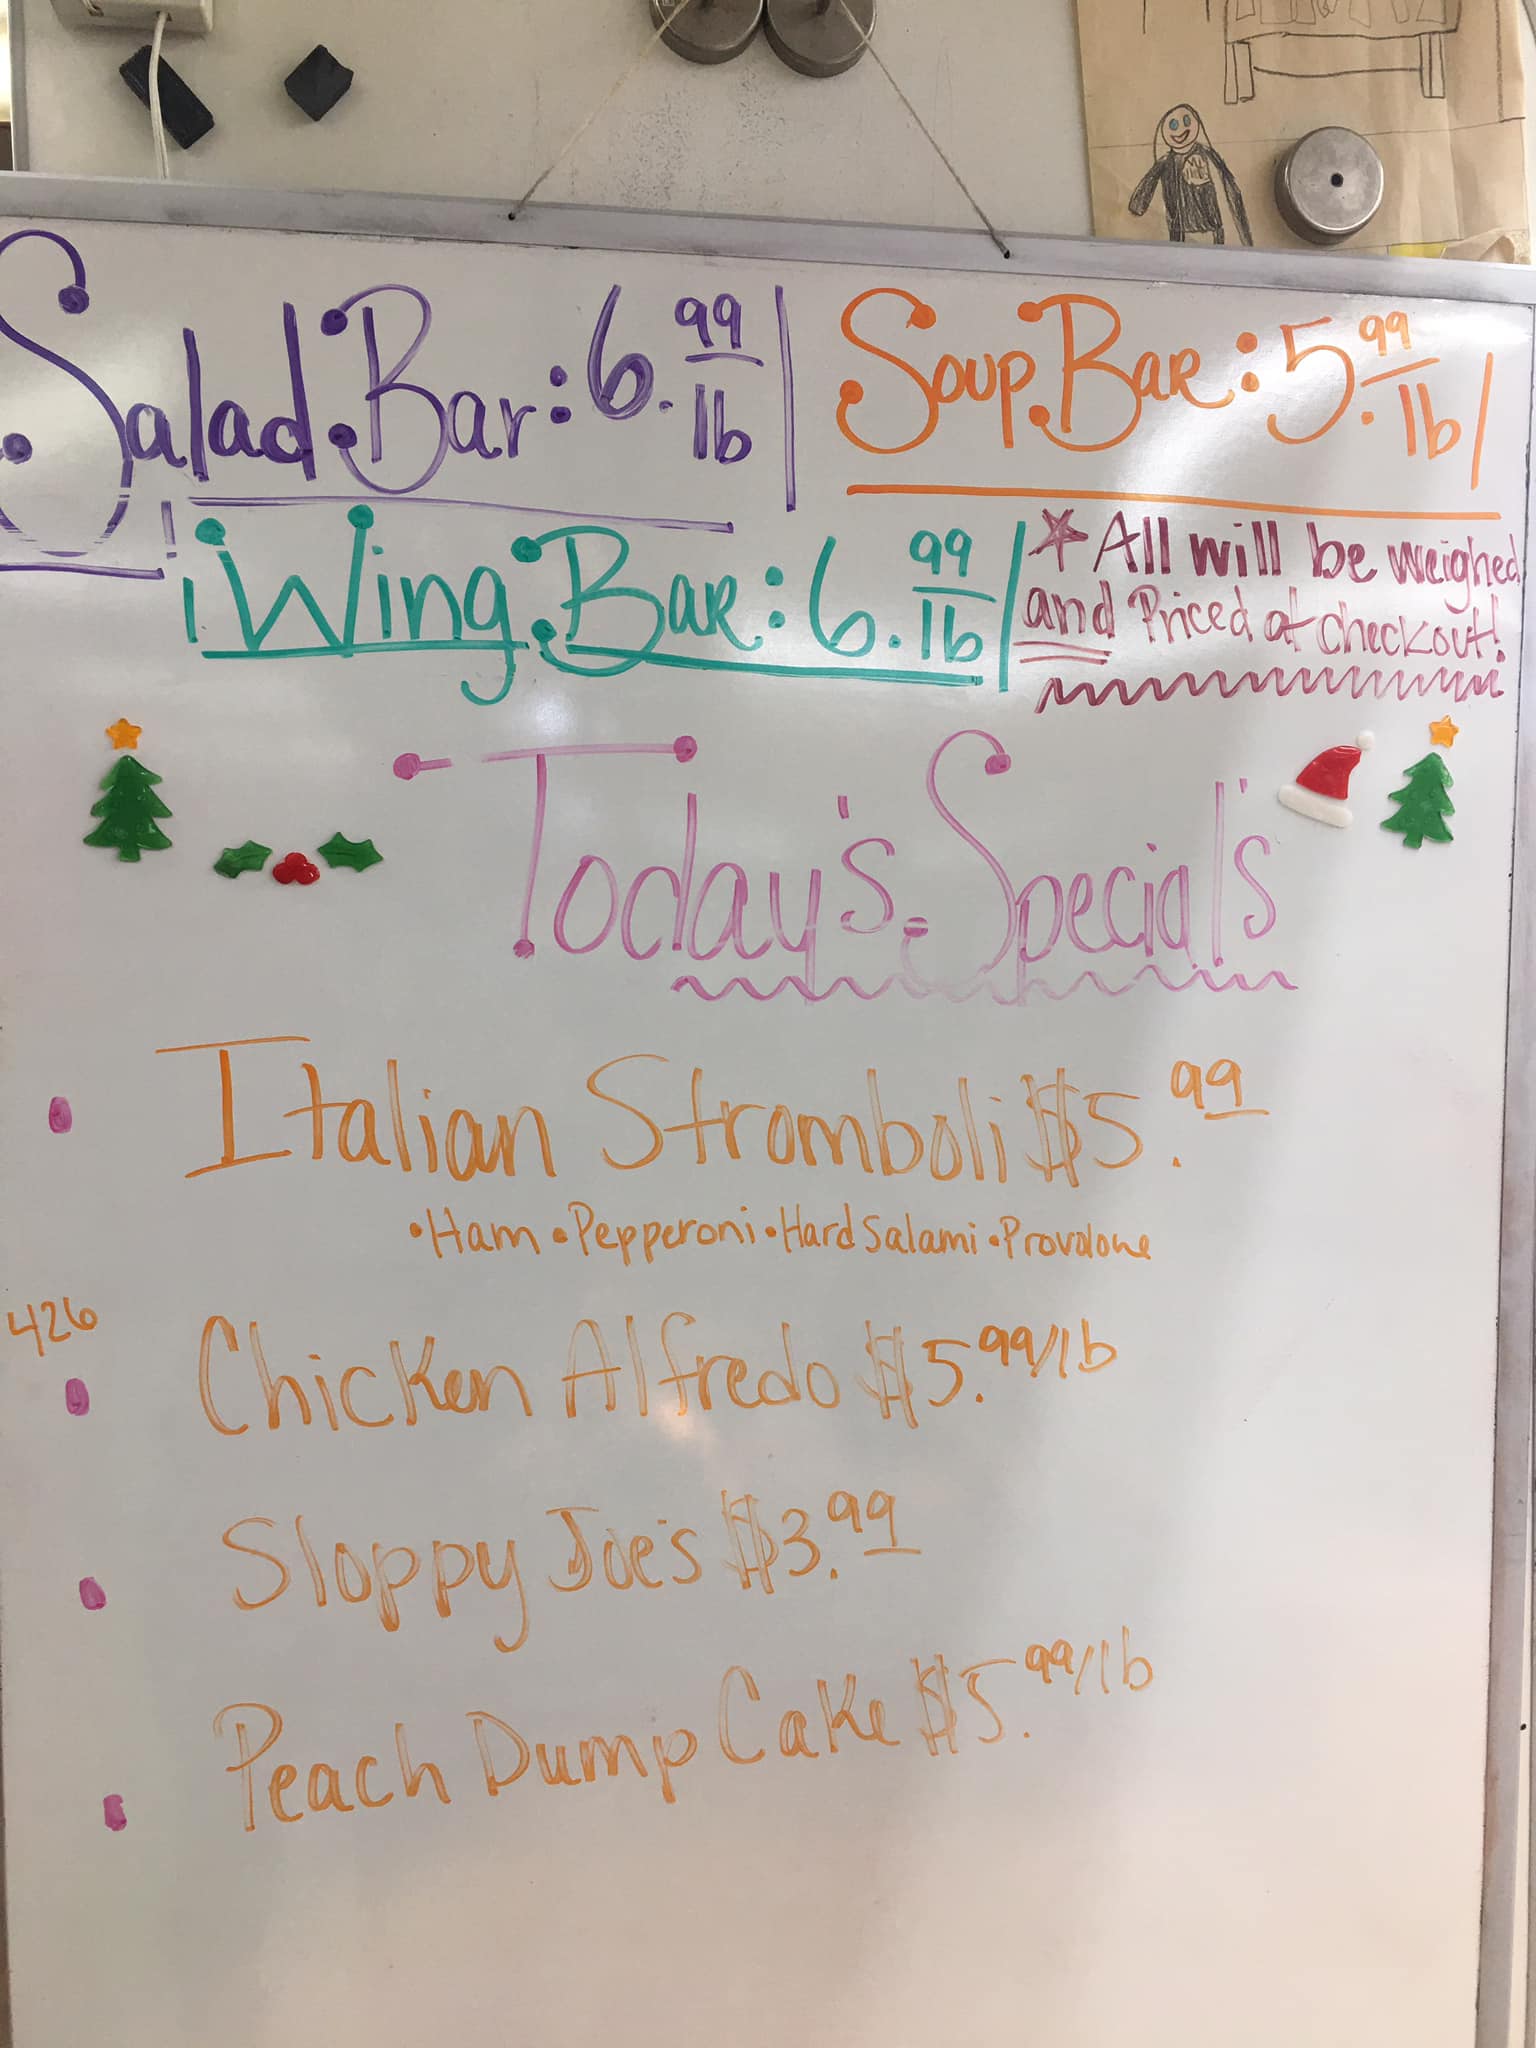 Salad Bar: 6.99/lb
Soup Bar: 5.99/lb
Wing Bar: 6.99/lb
* All will be weighed
and Priced at checkout!
Today's Special's
Italian Stromboli $5.99
•Ham •Pepperoni •Hard Salami •Provolone
426
Chicken Alfredo $5.99/lb
Sloppy Joe's $3.99
Peach Dump Cake $5.99/lb